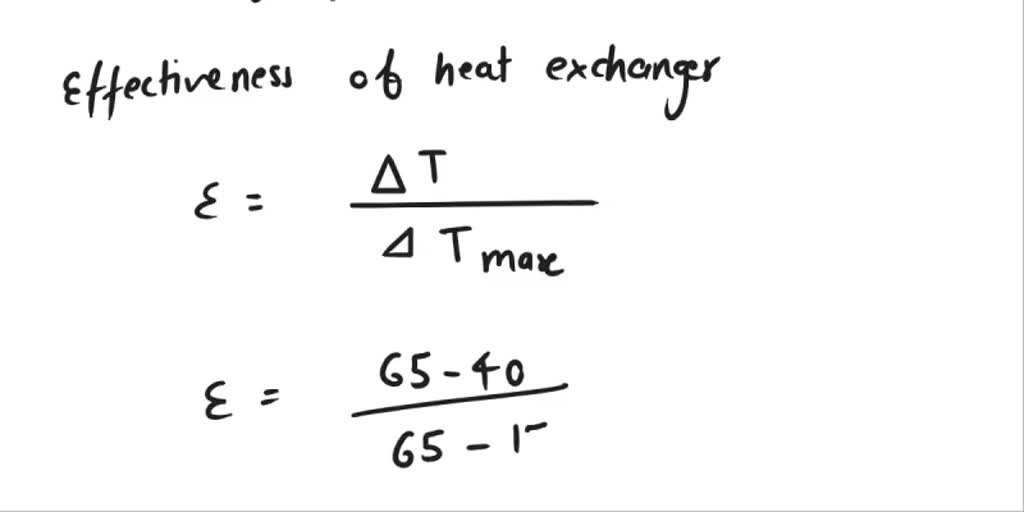 Effectiveness of heat exchanger
ε = ΔT / ΔT max
ε = 65-40 / 65-1